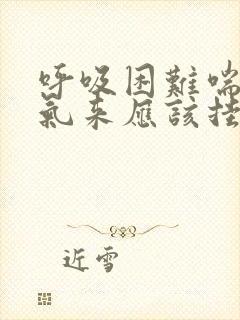 呼吸困難喘
氣来應該挂
近雪